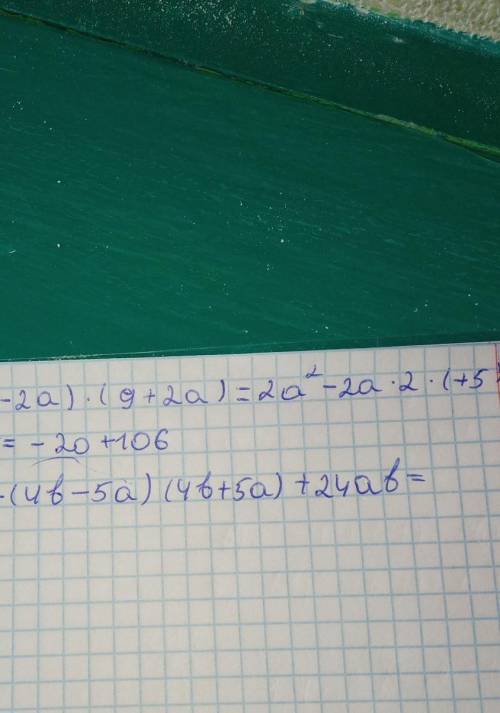 -2a) · (9+2a) = 2a² - 2a · 2 · (+5
= -20 + 106
-(4b-5a) (4b+5a) + 24ab =